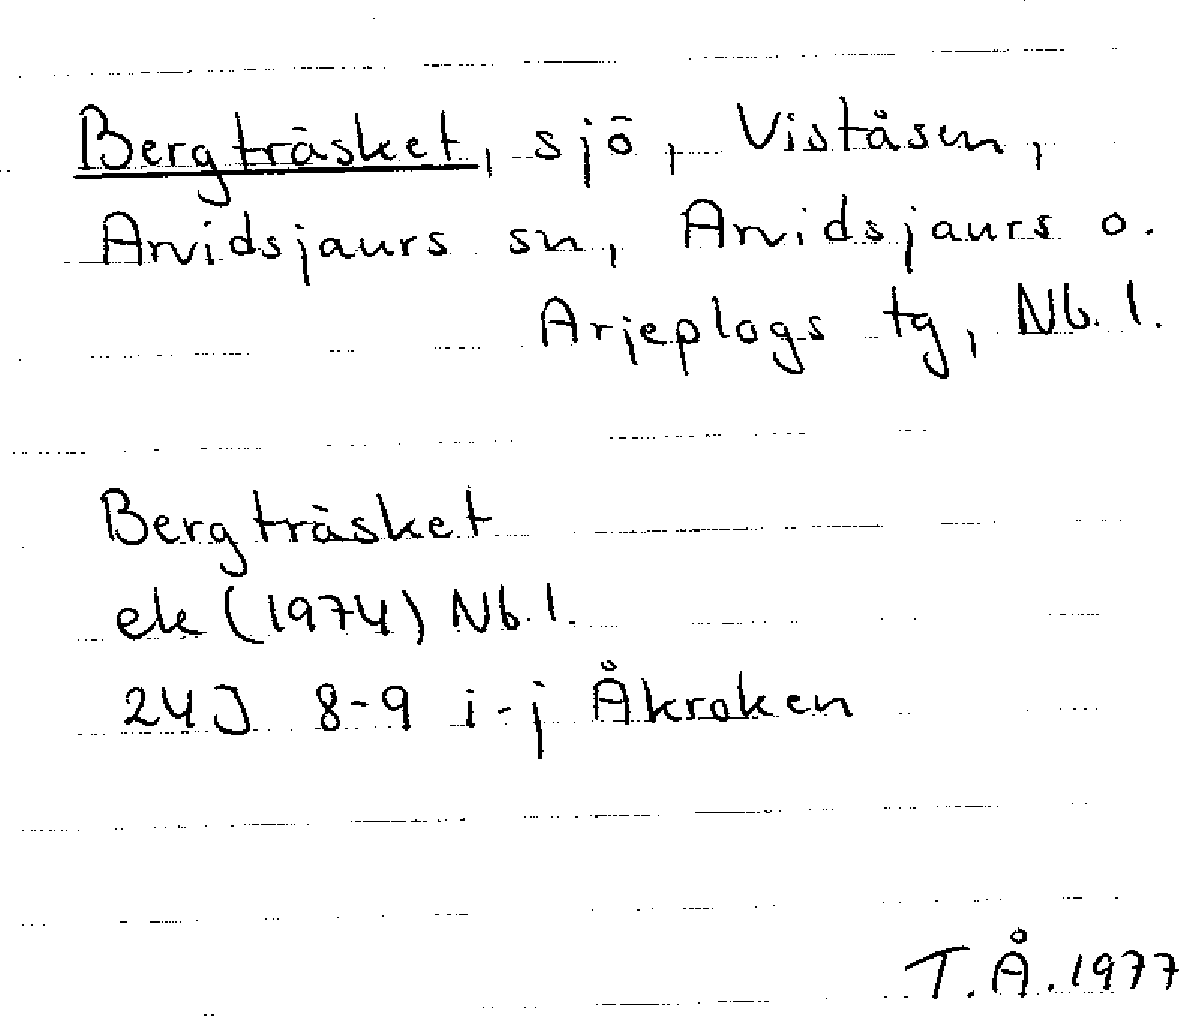 Bergträsket, sjö, Viståsen,
Arvidsjaurs sn, Arvidsjaurs o.
Arjeplogs tg, Nb. l.
Bergträsket
ek (1974) Nb. l.
24J 8-9 i-j Åkroken
T.Å. 1977